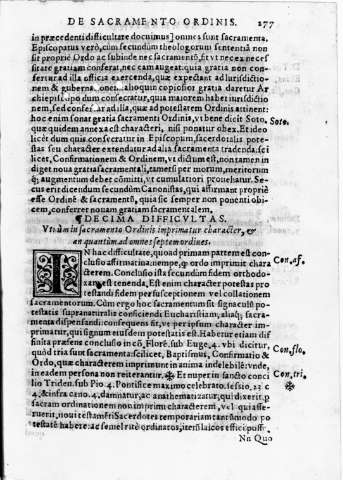 DE SACRAMENTO ORDINIS. 277
in præcedenti difficultate docuimus) omnes sunt sacramenta.
Episcopatus verò, cùm secundùm theologorum sententiã non
sit proprie Ordo ac subinde nec sacramentũ, fit vt nec ex neces
sitate gratiam conferat, nec eam augeat: quia gratia non con-
fertur ad illa officia exercenda, quæ expectant ad iurisdictio-
nem & guberna onem: alioquin copiosior gratia daretur Ar
chiepiscopo dum consecratur, quia maiorem habet iurisdictio
nem, sed confertur ad illa, quæ ad potestatem Ordinis attinent:
hoc enim sonat gratia sacramenti Ordinis, vt bene dicit Soto,
Soto.
quæ quidem annexa est characteri, nisi ponatur obex. Et ideo
licet dum quis consecratur in Episcopum, sacerdotalis potes-
tas seu character extendatur ad alia sacramenta tradenda, sci
licet, Confirmationem & Ordinem, vt dictum est, non tamen in
diget noua gratia sacramentali, tametsi per morum, meritorum
q; augmentum debet cõmitti, vt cumulatior præstatur. Se-
cus erit dicendum secundùm Canonistas, qui affirmant propriè
esse Ordinẽ & sacramentũ, quia sic semper non ponenti obi-
cem, conferret nouam gratiam sacramentalem,
¶DECIMA DIFFICVLTAS.
Vtrùm in sacramento Ordinis imprimatur character, &
an quantùm ad omnes septem ordines.
IN hac difficultate, quod primam partem est con-
clusio affirmatiua: nempe, q ordo imprimit chara
Con. af.
cterem. Conclusio ista secundùm fidem orthodo-
xam est tenenda, Est enim character potestas pro
testandi fidem per susceptionem vel collationem
sacramentorum. Cùm ergo hoc sacramentum sit signaculũ po-
testatis supranaturalis conficiendi Eucharistiam, aliaq; sacra-
menta dispensandi: consequens fit, vt per ipsum character im-
primatur, qui signum eiusdem potestatis est. Habetur etiam dif
finita præsens conclusio in cõ, Florẽ. sub Euge. 4. vbi dicitur,
quòd tria sunt sacramenta: scilicet, Baptismus, Confirmatio &
Con. flo.
Ordo, quæ characterem imprimunt in anima indelebilẽ: vnde
in eadem persona non reiterantur. ✠ Et nuper in sancto conci
lio Triden. sub Pio. 4. Pontifice maximo celebrato. sessio. 23 c
Con. tri.
4. & infra cano. 4. damnatur, ac anathematizatur, qui dixerit, p
✠
sacram ordinationem non imprimi characterem, vel qui asse-
ruerit, noui testamẽti Sacerdotes temporariam tantũmodo po
testatẽ habere: ac semel ritè ordinatos, iterũ laicos effici posse.
Nn Quo